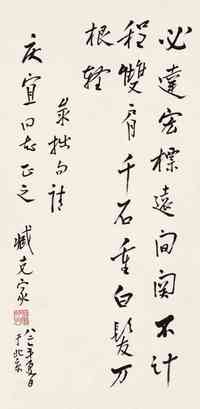 必達宏標遠间関不计
程雙肩千石重白髮万
根轻
录拙句请
庆宜同志正之
臧克家
八二年夏日
于北京